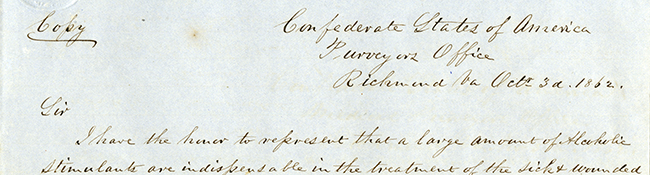 Copy
Confederate States of America
Purveyors Office
Richmond Va Octr 3d. 1862.
Sir
I have the honor to represent that a large amount of Alcoholic
stimulants are indispensable in the treatment of the sick & wounded